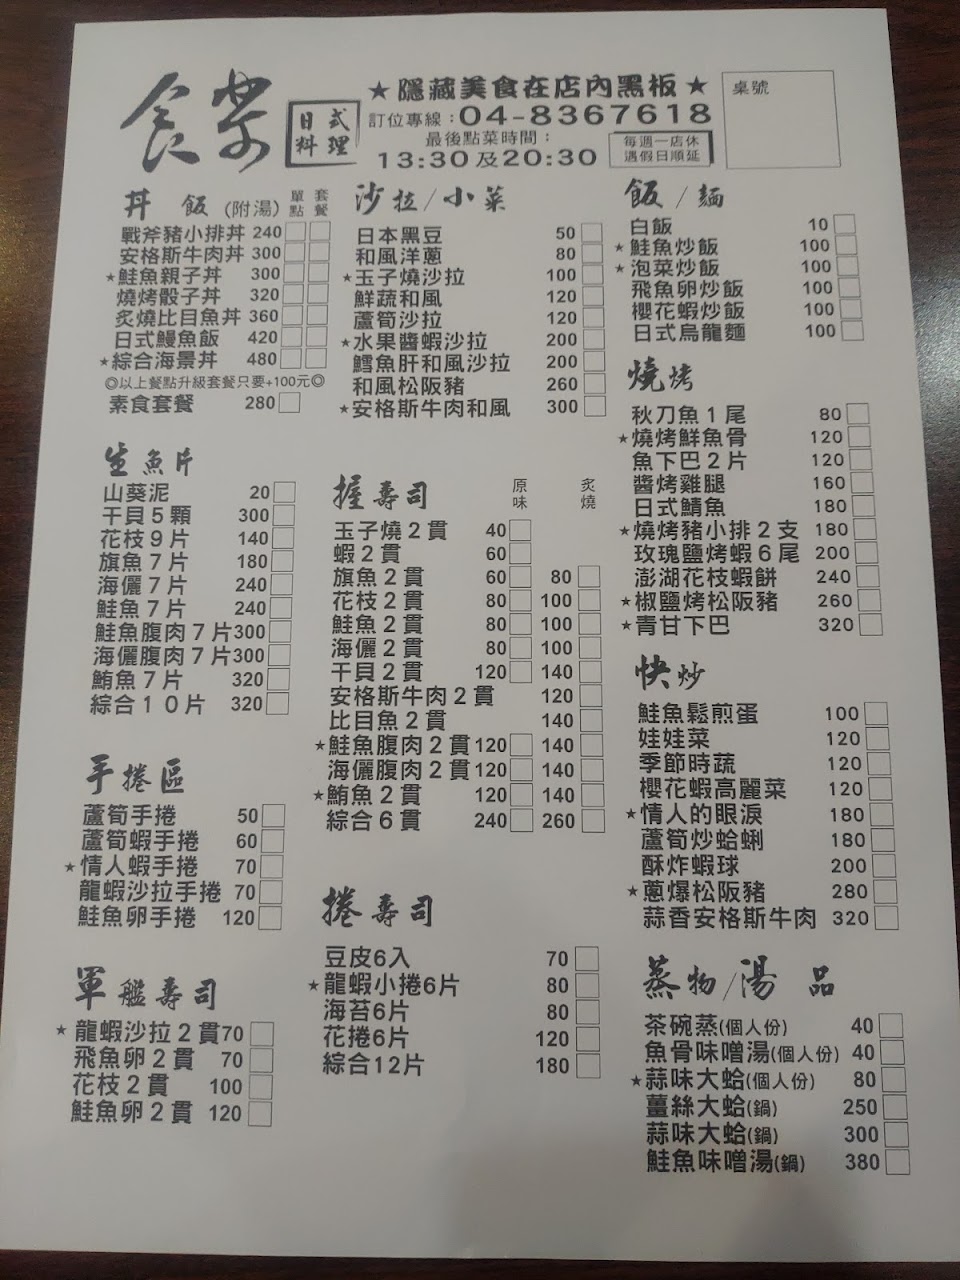 食樂
日式
料理
★隱藏美食在店內黑板★
訂位專線：04-8367618
最後點菜時間：
13:30及20:30
每週一店休
遇假日順延
桌號
丼 飯(附湯) 單點 套餐
戰斧豬小排丼 240
安格斯牛肉丼 300
★鮭魚親子丼 300
燒烤骰子丼 320
炙燒比目魚丼 360
日式鰻魚飯 420
★綜合海景丼 480
◎以上餐點升級套餐只要+100元◎
素食套餐 280
生魚片
山葵泥 20
干貝5顆 300
花枝9片 140
旗魚7片 180
海儷7片 240
鮭魚7片 240
鮭魚腹肉7片 300
海儷腹肉7片 300
鮪魚7片 320
綜合10片 320
手捲區
蘆筍手捲 50
蘆筍蝦手捲 60
★情人蝦手捲 70
龍蝦沙拉手捲 70
鮭魚卵手捲 120
軍艦壽司
★龍蝦沙拉2貫 70
飛魚卵2貫 70
花枝2貫 100
鮭魚卵2貫 120
沙拉/小菜
日本黑豆 50
和風洋蔥 80
★玉子燒沙拉 100
鮮蔬和風 120
蘆筍沙拉 120
★水果醬蝦沙拉 200
鱈魚肝和風沙拉 200
和風松阪豬 260
★安格斯牛肉和風 300
握壽司 原味 炙燒
玉子燒2貫 40
蝦2貫 60
旗魚2貫 60 80
花枝2貫 80 100
鮭魚2貫 80 100
海儷2貫 80 100
干貝2貫 120 140
安格斯牛肉2貫 120
比目魚2貫 140
★鮭魚腹肉2貫 120 140
海儷腹肉2貫 120 140
★鮪魚2貫 120 140
綜合6貫 240 260
捲壽司
豆皮6入 70
★龍蝦小捲6片 80
海苔6片 80
花捲6片 120
綜合12片 180
飯/麵
白飯 10
★鮭魚炒飯 100
★泡菜炒飯 100
飛魚卵炒飯 100
櫻花蝦炒飯 100
日式烏龍麵 100
燒烤
秋刀魚1尾 80
★燒烤鮮魚骨 120
魚下巴2片 120
醬烤雞腿 160
日式鯖魚 180
★燒烤豬小排2支 180
玫瑰鹽烤蝦6尾 200
澎湖花枝蝦餅 240
★椒鹽烤松阪豬 260
★青甘下巴 320
快炒
鮭魚鬆煎蛋 100
娃娃菜 120
季節時蔬 120
櫻花蝦高麗菜 120
★情人的眼淚 180
蘆筍炒蛤蜊 180
酥炸蝦球 200
★蔥爆松阪豬 280
蒜香安格斯牛肉 320
蒸物/湯 品
茶碗蒸(個人份) 40
魚骨味噌湯(個人份) 40
★蒜味大蛤(個人份) 80
薑絲大蛤(鍋) 250
蒜味大蛤(鍋) 300
鮭魚味噌湯(鍋) 380